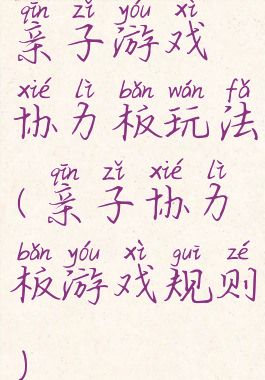 qīn zǐ yóu xì
亲子游戏
xié lì bǎn wán fǎ
协力板玩法
qīn zǐ xié lì
(亲子协力
bǎn yóu xì guī zé
板游戏规则
)